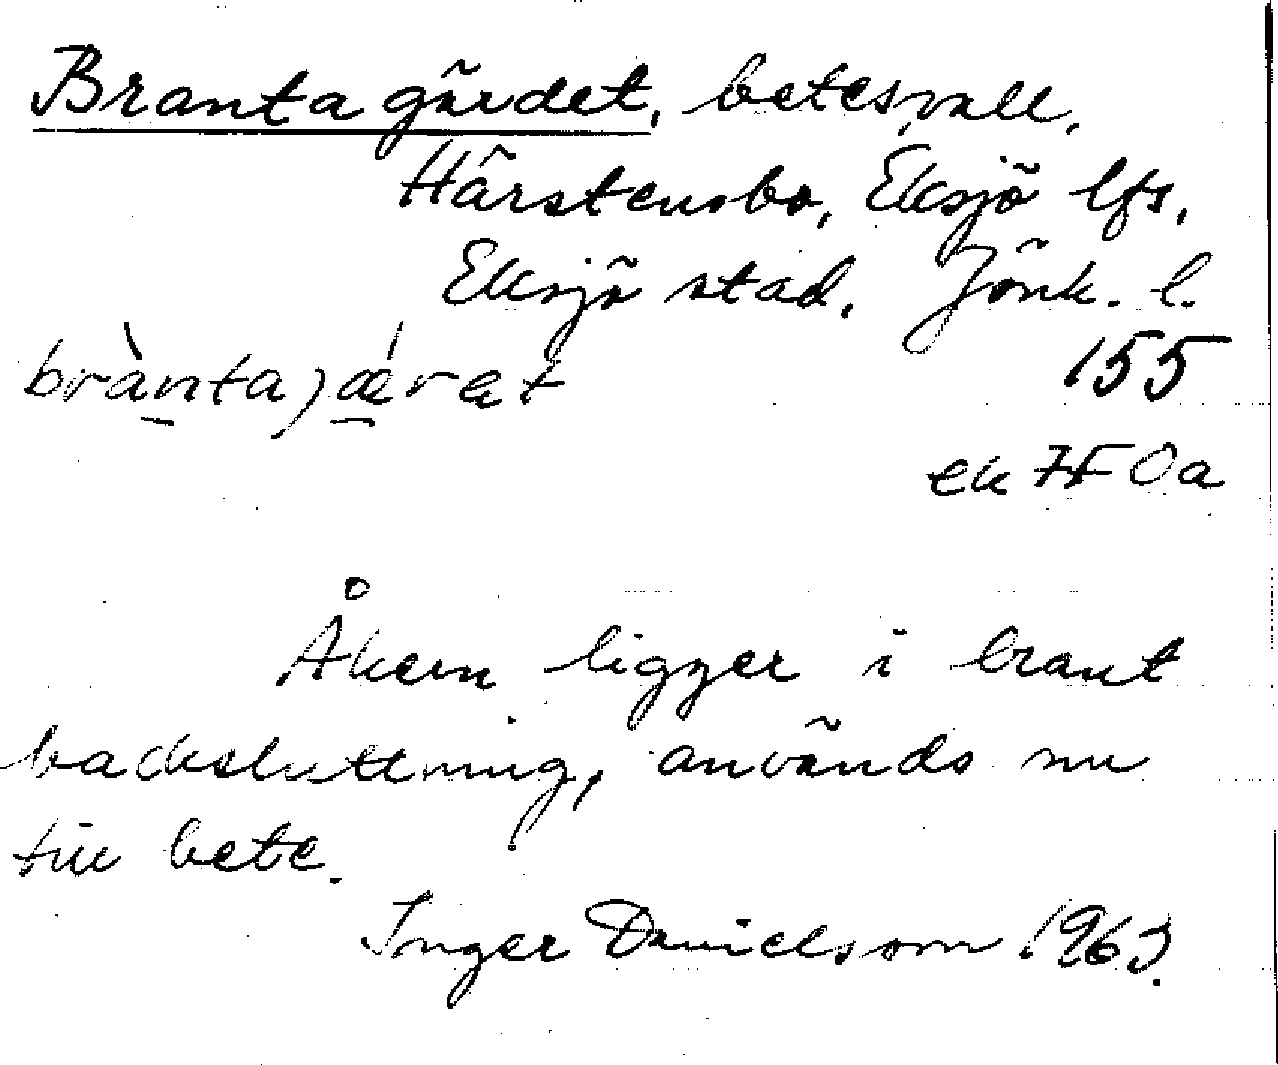 Branta gärdet, betesvall.
Hårstensbo, Eksjö lfs.
Eksjö stad. Jönk. l.
brànta) ǽret
155
ek 7F 0a
Åkern ligger i brant
backsluttning, används nu
till bete.
Inger Danielsson 1963.